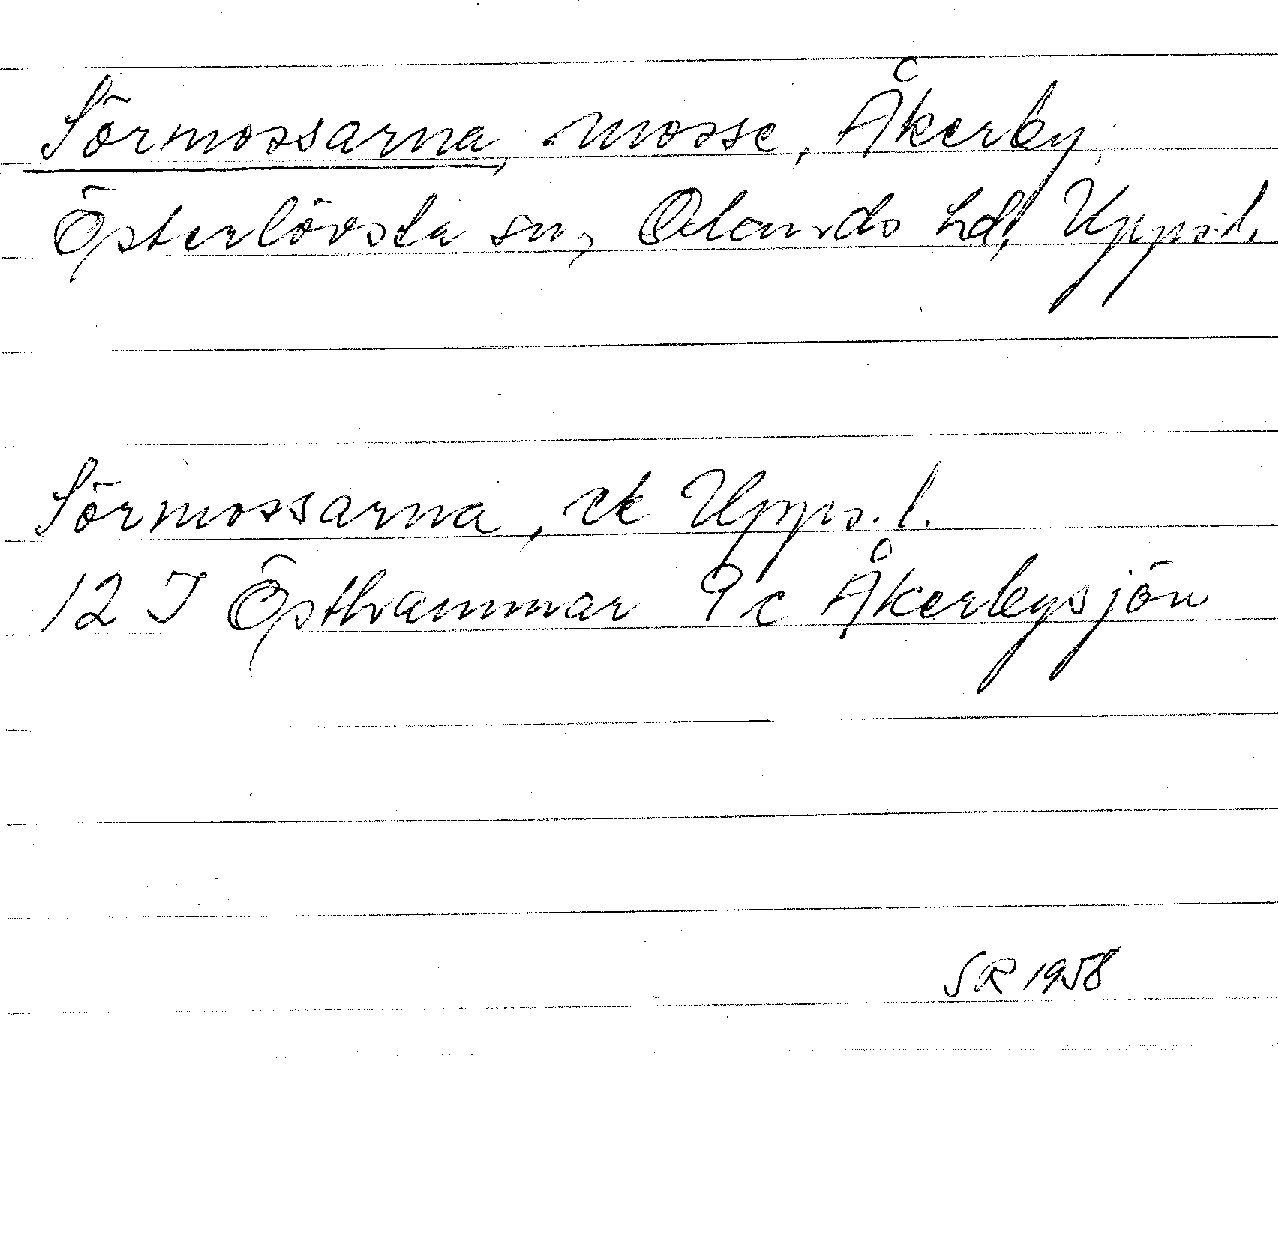 Sörmossarna, mosse, Åkerby,
Österlövsta sn, Olands hd, Upps.l.
Sörmossarna, ek Upps.l.
12 I Östhammar 9c Åkerbysjön
SR 1958